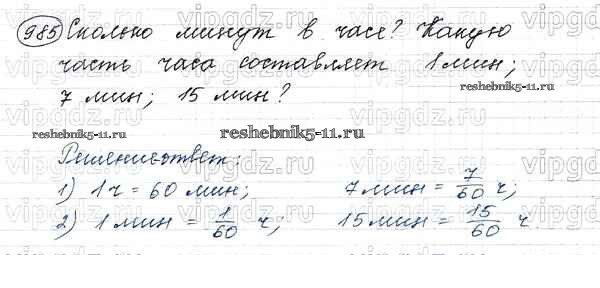 985 Сколько минут в часе? Какую
часть часа составляет 1 мин;
7 мин; 15 мин?
reshebnik5-11.ru
reshebnik5-11.ru
reshebnik5-11.ru
Решение-ответ:
1) 1 ч = 60 мин; 7 мин = 7/60 ч;
2) 1 мин = 1/60 ч; 15 мин = 15/60 ч.
vipgdz.ru